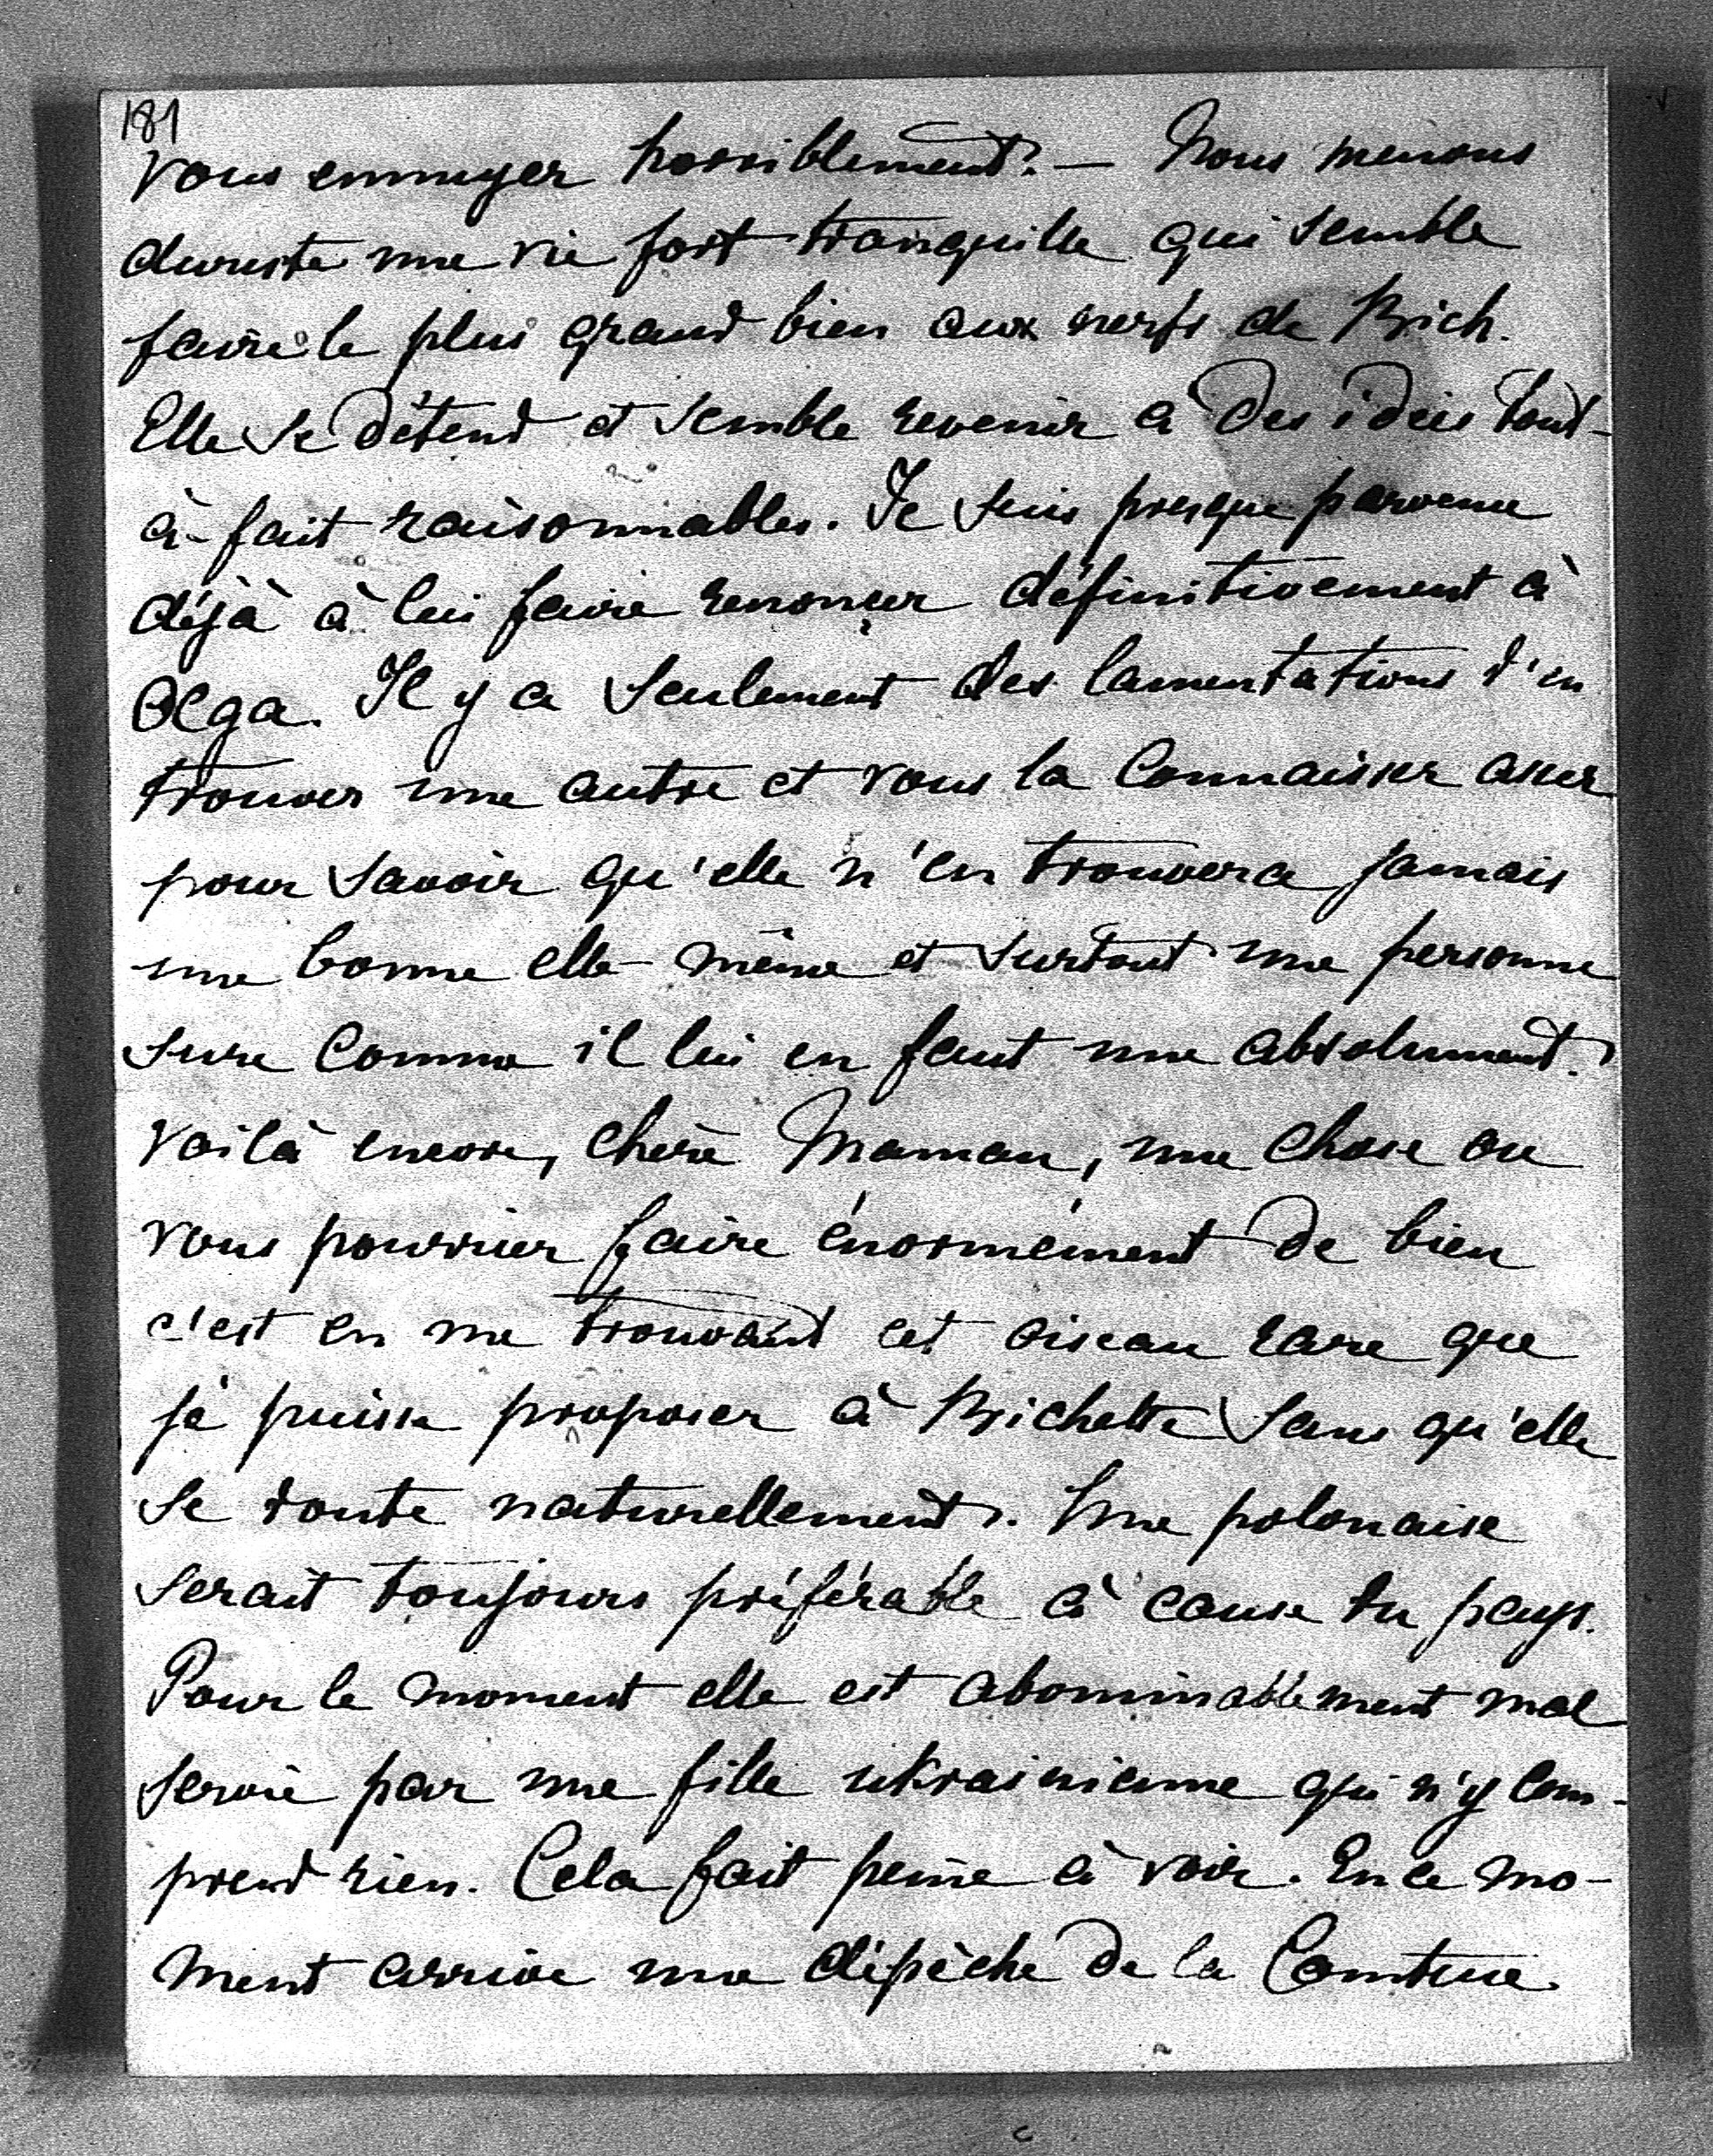 181
vous ennuyer horriblement. — Nous menons
dureste une vie fort tranquille qui semble
faire le plus grand bien aux nerfs de Bich.
Elle se détend et semble revenir à des idées tout-
à-fait raisonnables. Je suis presque parvenue
déjà à lui faire renonçer définitivement à
Olga. Il y a seulement des lamentations d'en
trouver une autre et vous la connaissez assez
pour savoir qu'elle n'en trouvera jamais
une bonne elle-même et surtout une personne
sure comme il lui en faut une absolument.
Voilà encore, chère Maman, une chose ou
vous pourriez faire énormément de bien
c'est en me trouvant cet oiseau rare que
je puisse proposer à Bichette sans qu'elle
se doute naturellement. Une polonaise
serait toujours préférable à cause du pays.
Pour le moment elle est abominablement mal
servie par une fille ukrainienne qui n'y com-
prend rien. Cela fait peine à voir. En ce mo-
ment arrive une dépèche de la Comtesse